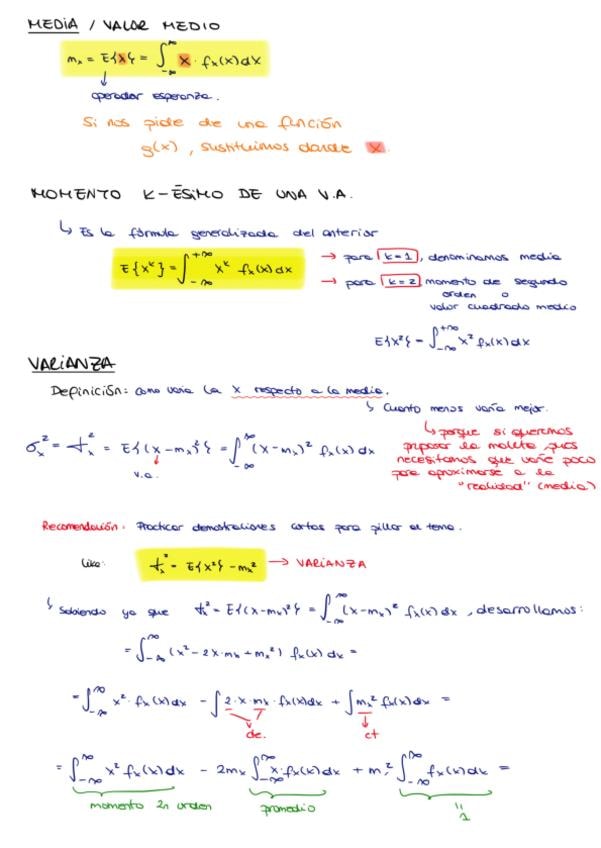 MEDIA / VALOR MEDIO
mₓ = E{x} = ∫_{-∞}^{∞} x · fₓ(x) dx
operador esperanza.
Si nos pide de una función
g(x), sustituimos donde x.
MOMENTO K-ÉSIMO DE UNA V.A.
↳ Es la fórmula generalizada del anterior
E{x^k} = ∫_{-∞}^{+∞} x^k fₓ(x) dx
→ para k=1, denominamos media
→ para k=2, momento de segundo
orden o
valor cuadrado medio
E{x²} = ∫_{-∞}^{+∞} x² fₓ(x) dx
VARIANZA
Definición: como varia la x respecto a la media.
↳ Cuanto menos varía mejor.
↳ porque si queremos
la pues
necesitamos que varíe poco
para aproximarse a la
"realidad" (media)
σₓ² = tₓ² = E{(x-mₓ)²} = ∫_{-∞}^{∞} (x-mₓ)² fₓ(x) dx
v.a.
Recomendación: Practicar demostraciones cortas para pillar el tema.
Like: tₓ² = E{x²} - mₓ² → VARIANZA
↳ Sabiendo ya que tₓ² = E{(x-mₓ)²} = ∫_{-∞}^{∞} (x-mₓ)² fₓ(x) dx, desarrollamos:
= ∫_{-∞}^{∞} (x² - 2x·mₓ + mₓ²) fₓ(x) dx =
= ∫_{-∞}^{∞} x² · fₓ(x) dx - ∫ 2·x·mₓ · fₓ(x) dx + ∫ mₓ² fₓ(x) dx =
ct
= ∫_{-∞}^{∞} x² fₓ(x) dx - 2mₓ ∫_{-∞}^{∞} x·fₓ(x) dx + mₓ² ∫_{-∞}^{∞} fₓ(x) dx =
momento 2n orden promedio "1